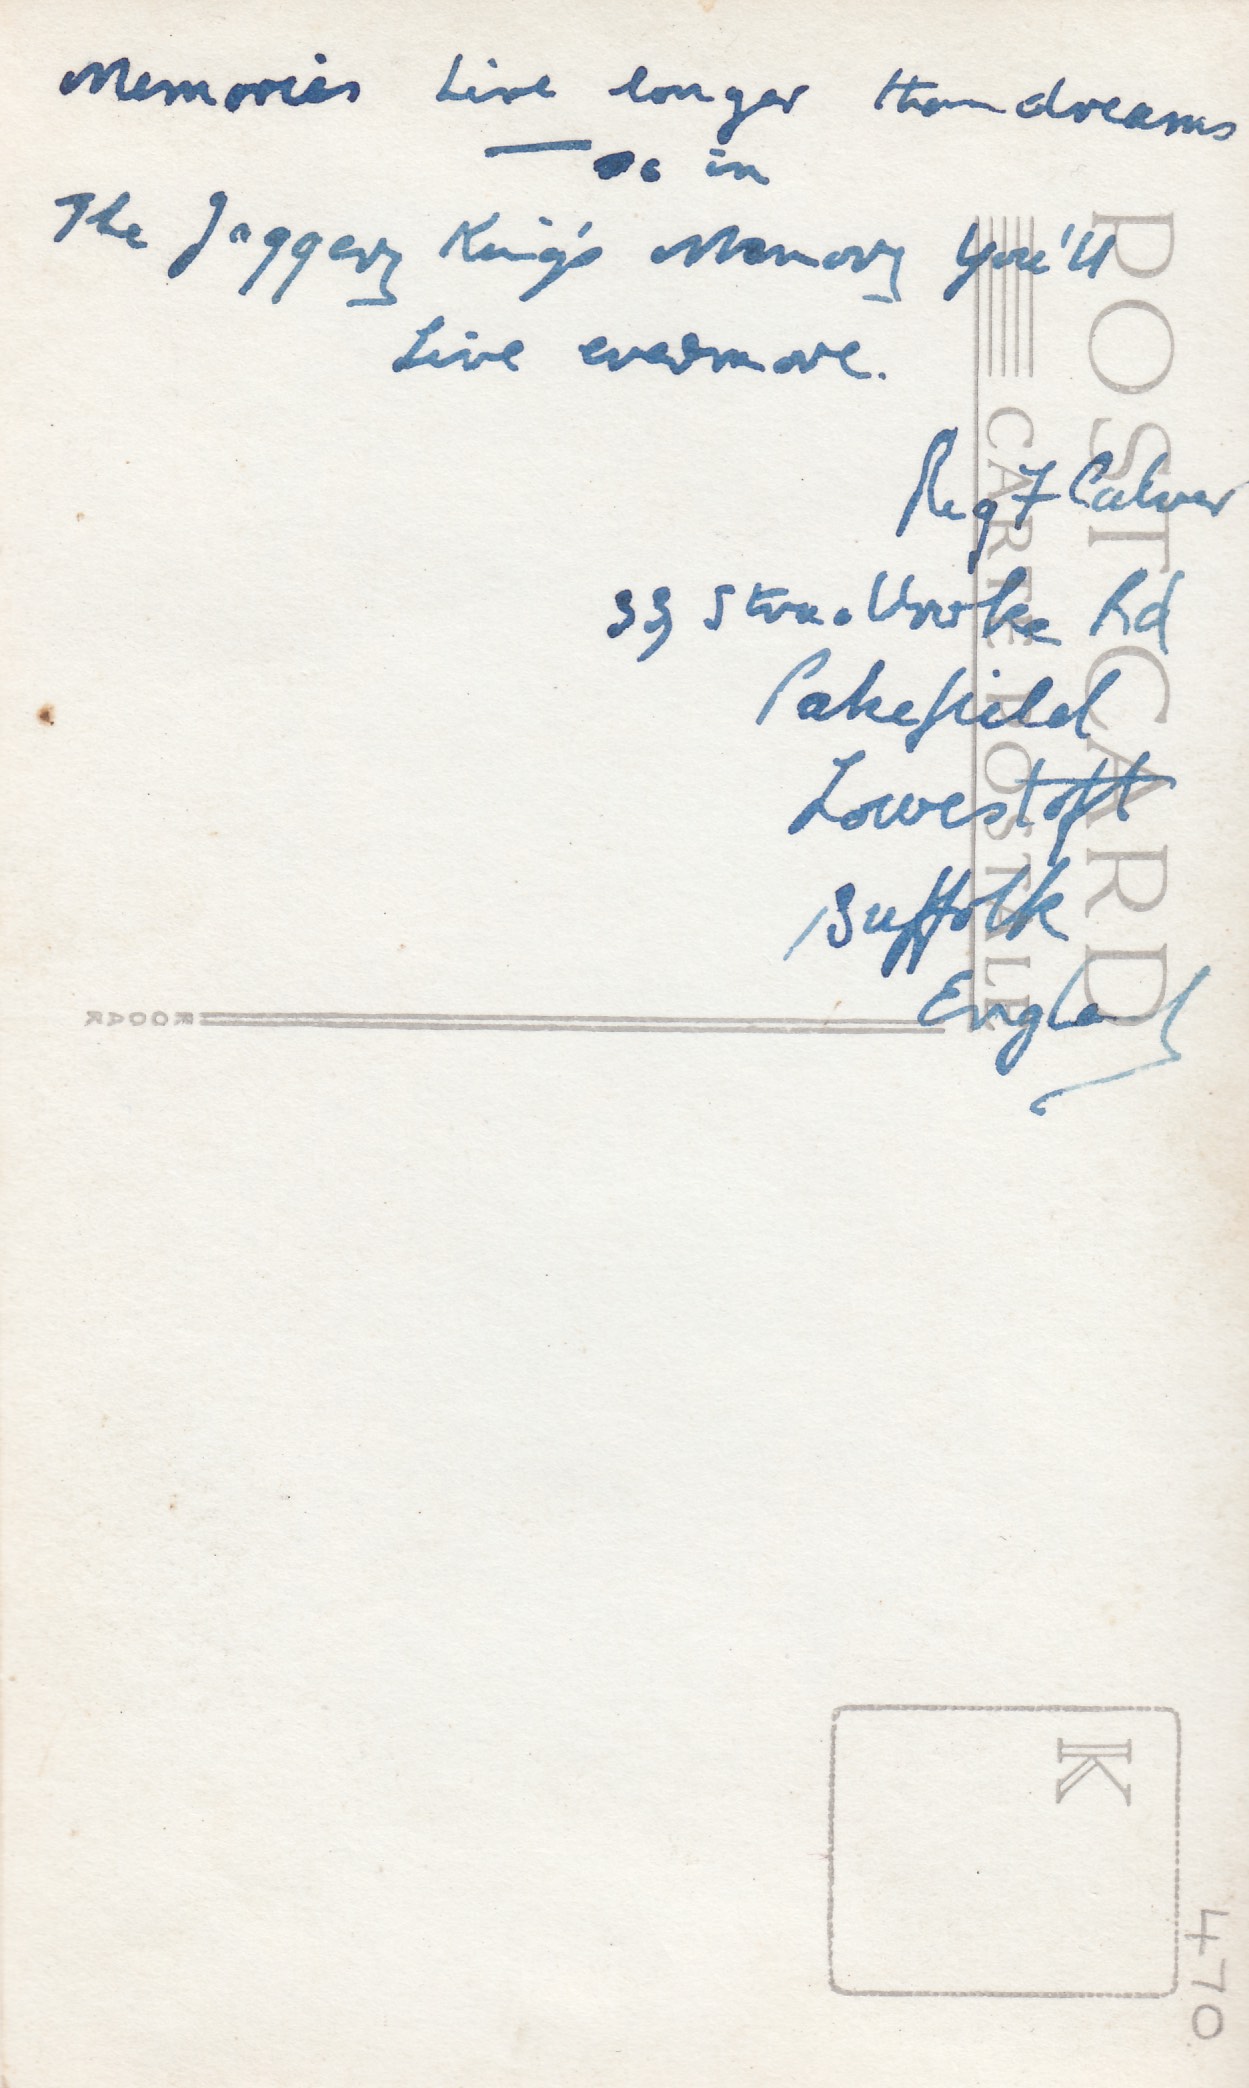 Memories Live longer than dreams
so in
The Jaggery King's Memory You'll
Live evermore.
Reg F Calver
33 Rd
Pakefield
Lowestoft
Suffolk
England
POST CARD
CARTE POSTALE
K
470